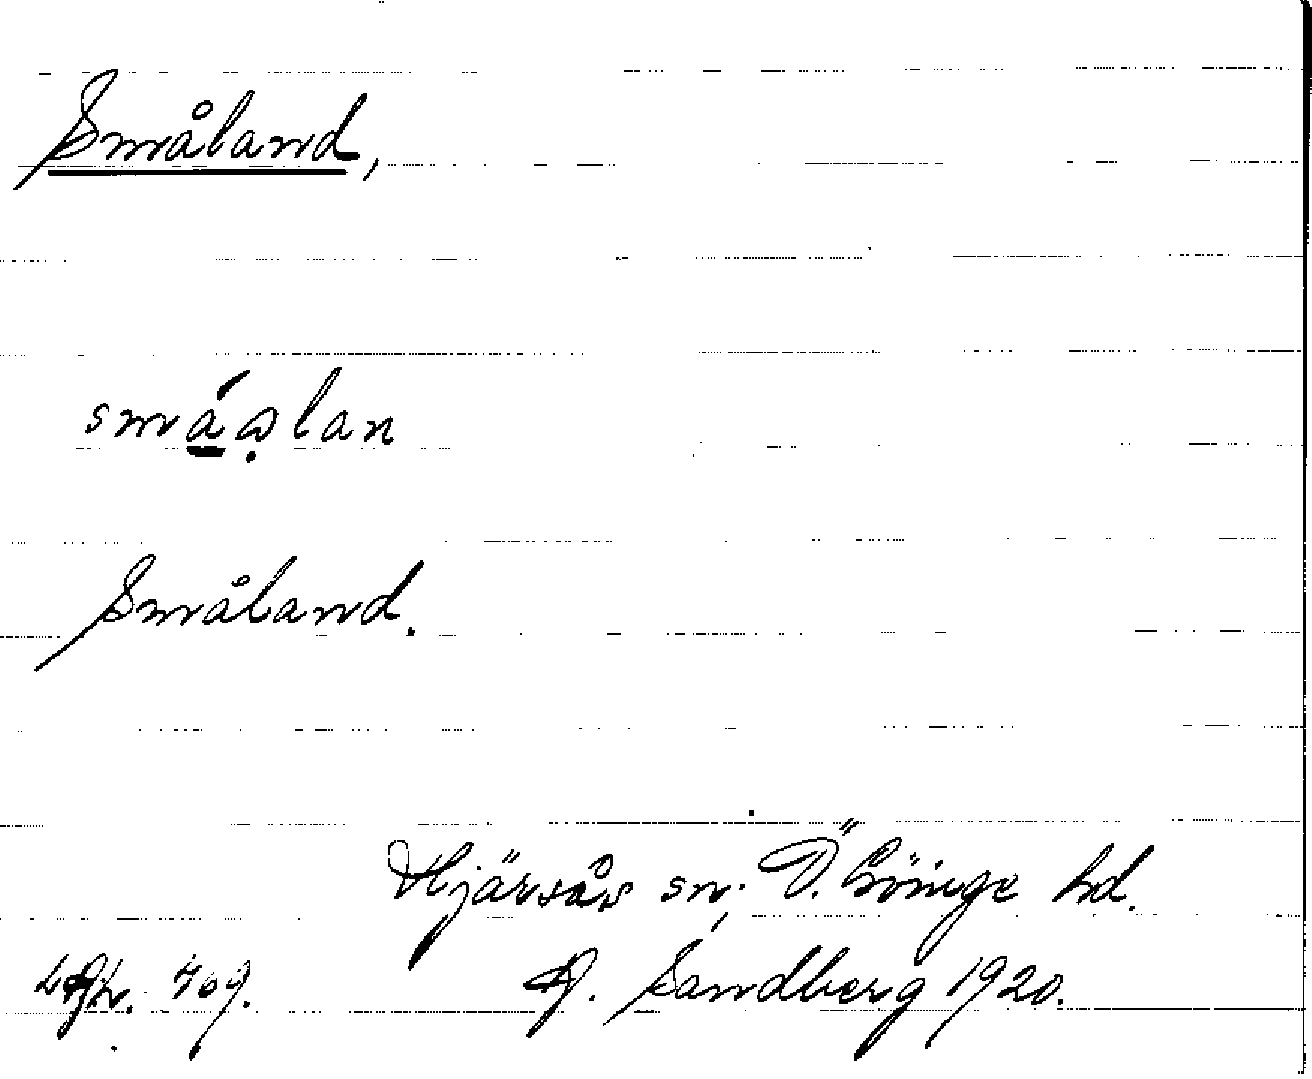 Småland,
småͅlan
Småland.
Hjärsås sn; Ö. Göinge hd.
A. Sandberg 1920.